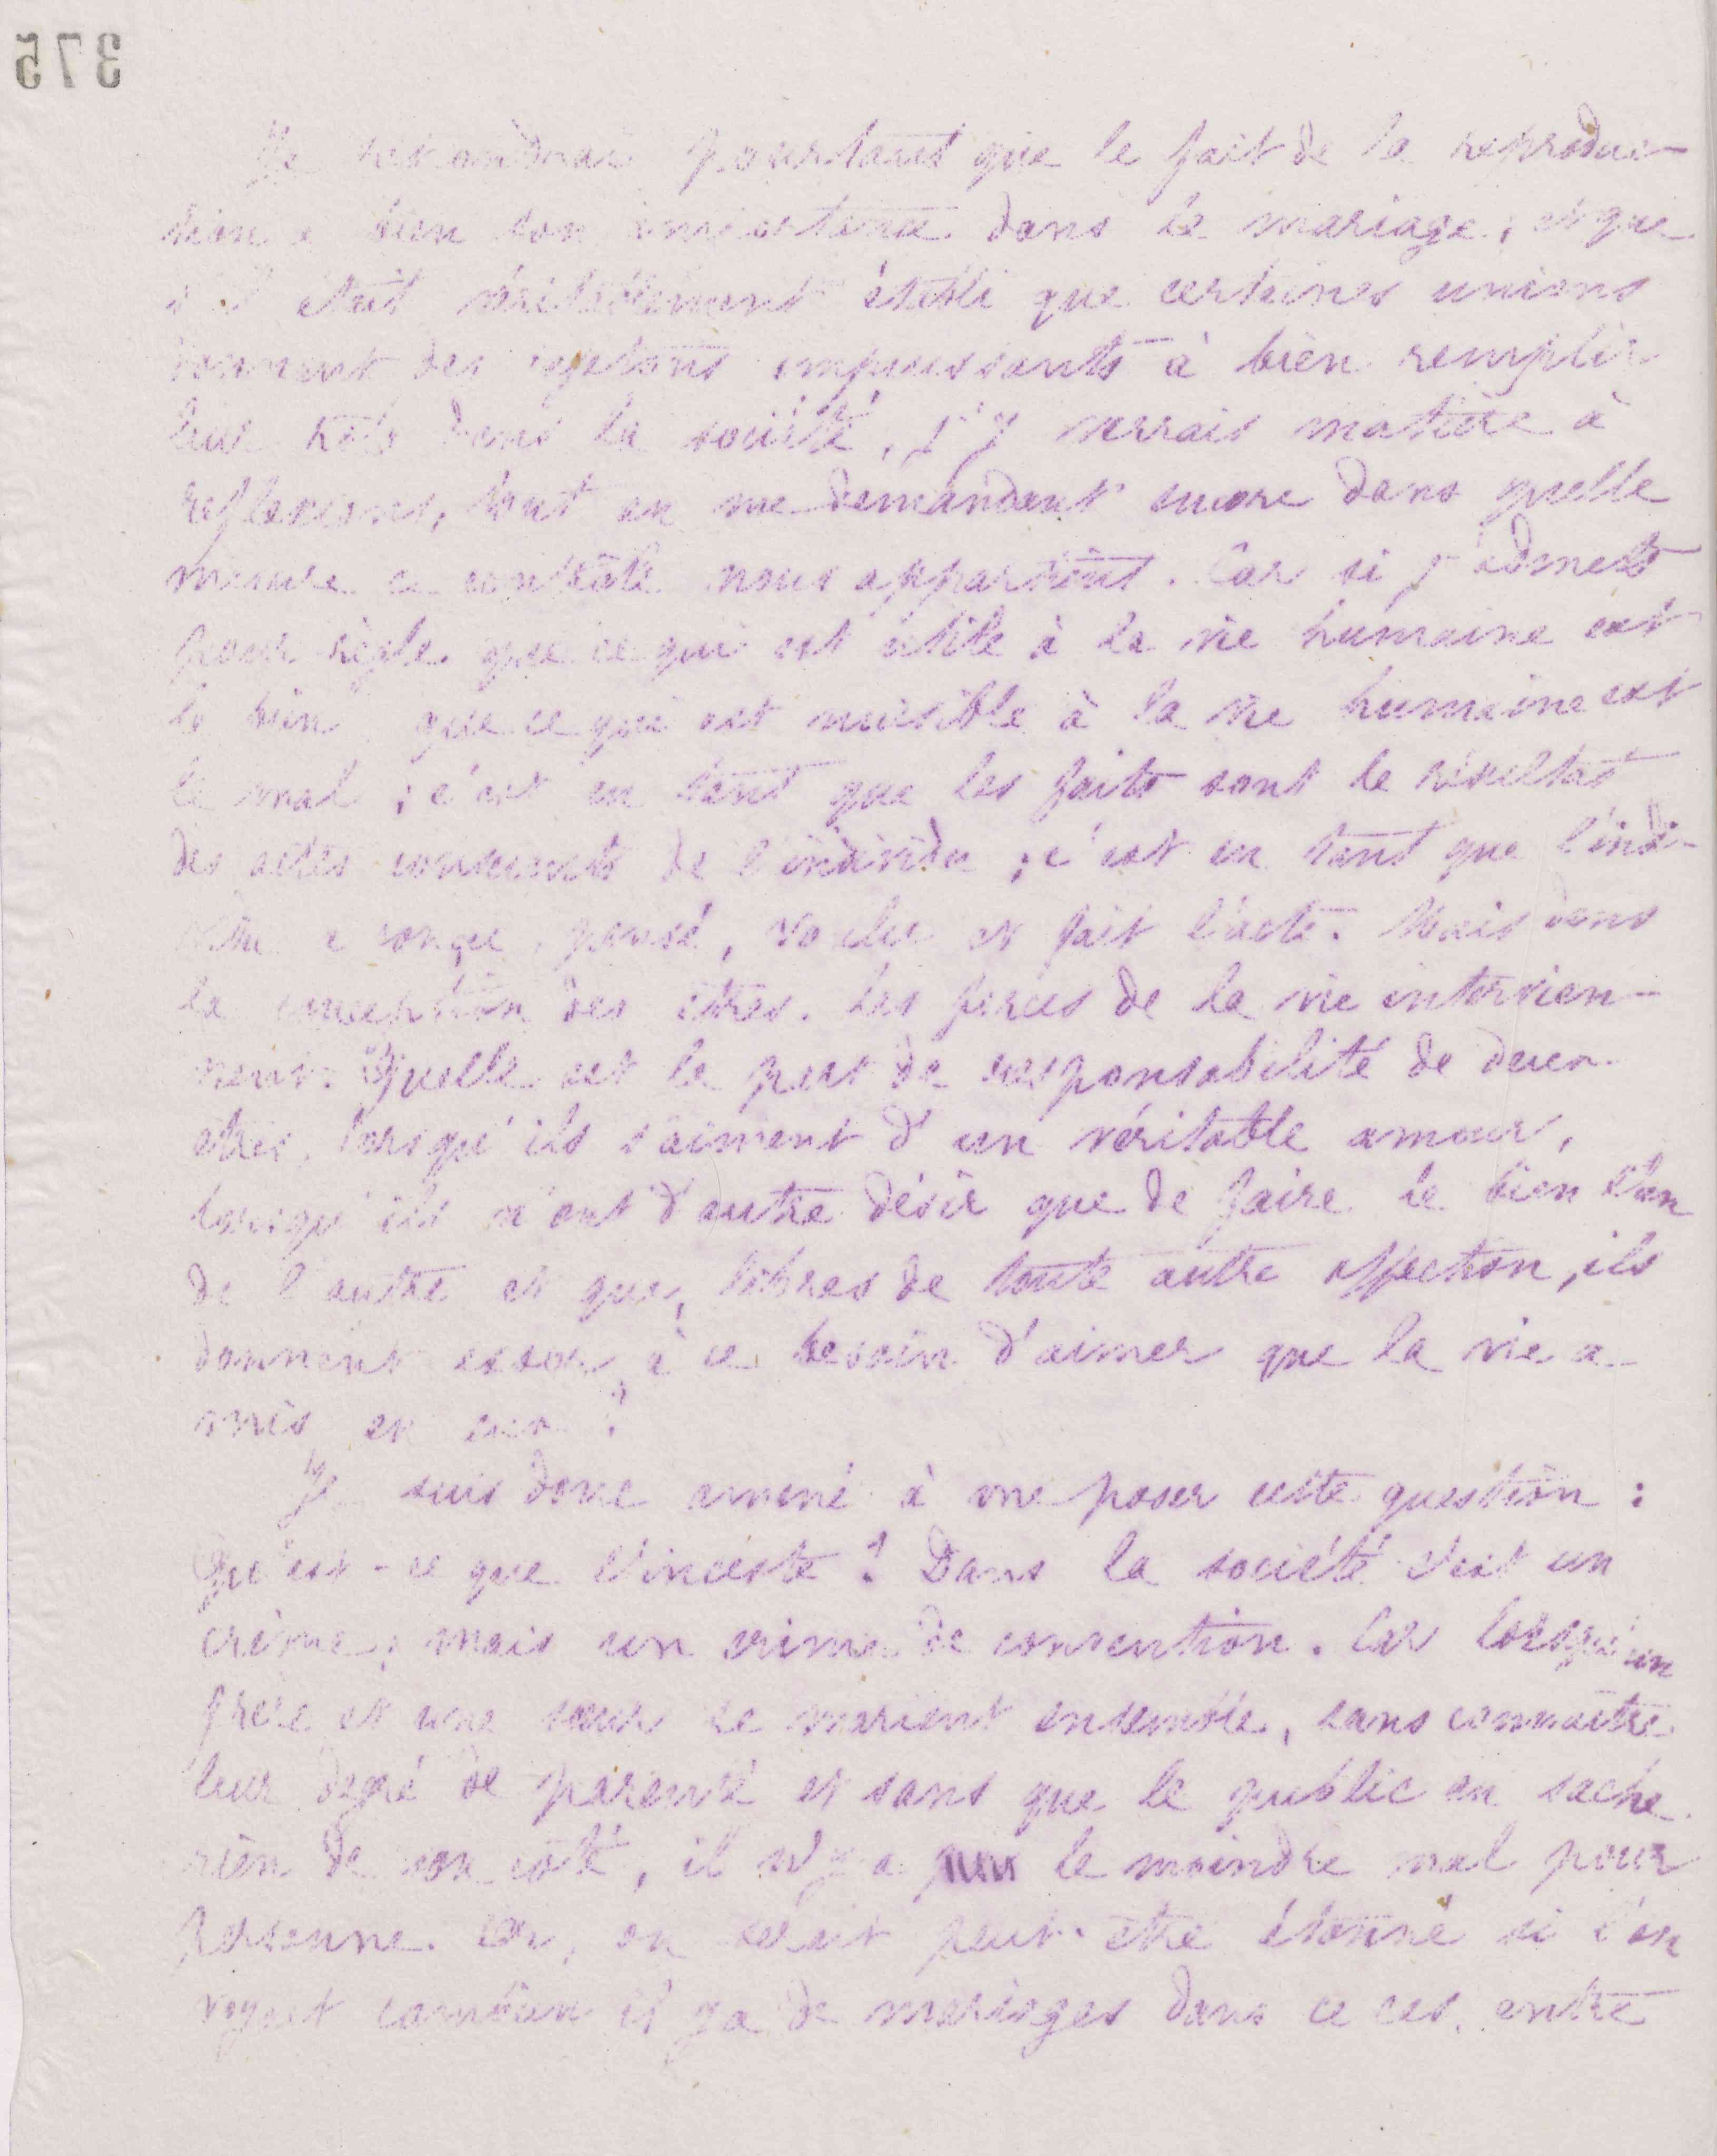 375
Je répondrai pourtant que le fait de la reproduc-
tion a bien son importance dans le mariage, et que
s'il était véritablement établi que certaines unions
donnent des rejetons impuissants à bien remplir
leur rôle dans la société, j'y verrais matière à
réflexions, tout en me demandant encore dans quelle
mesure ce contrôle nous appartient. Car si j'admets
pour règle que ce qui est utile à la vie humaine est
le bien que ce qui est nuisible à la vie humaine est
le mal ; c'est en tant que les faits sont le résultat
des actes conscients de l'individu ; c'est en tant que l'indi-
vidu a conçu, pensé, voulu et fait l'acte. Mais dans
la conception des êtres. Les forces de la vie intervien-
nent. Quelle est la part de responsabilité de deux
êtres, lorsqu'ils s'aiment d'un véritable amour,
lorsqu'ils n'ont d'autre désir que de faire le bien l'un
de l'autre et que, libres de toute autre affection, ils
donnent essor à ce besoin d'aimer que la vie a
mis en eux ?
Je suis donc amené à me poser cette question :
Qu'est-ce que l'inceste ? Dans la société c'est un
crime, mais un crime de convention. Car lorsqu'un
frère et une sœur se marient ensemble, sans connaître
leur degré de parenté et sans que le public en sache
rien de son côté, il n'y a pas le moindre mal pour
personne. Or, on serait peut-être étonné si l'on
voyait combien il y a de mariages dans ce cas, entre